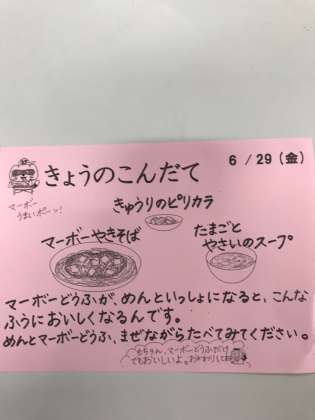 きょうのこんだて
6/29(金)
マーボー
うまいボーッ!
きゅうりのピリカラ
マーボーやきそば
たまごと
やさいのスープ
マーボーどうふが、めんといっしょになると、こんな
ふうにおいしくなるんです。
めんとマーボーどうふ、まぜながらたべてみてください。
もちろん、マーボーどうふだけ
でもおいしいよ。